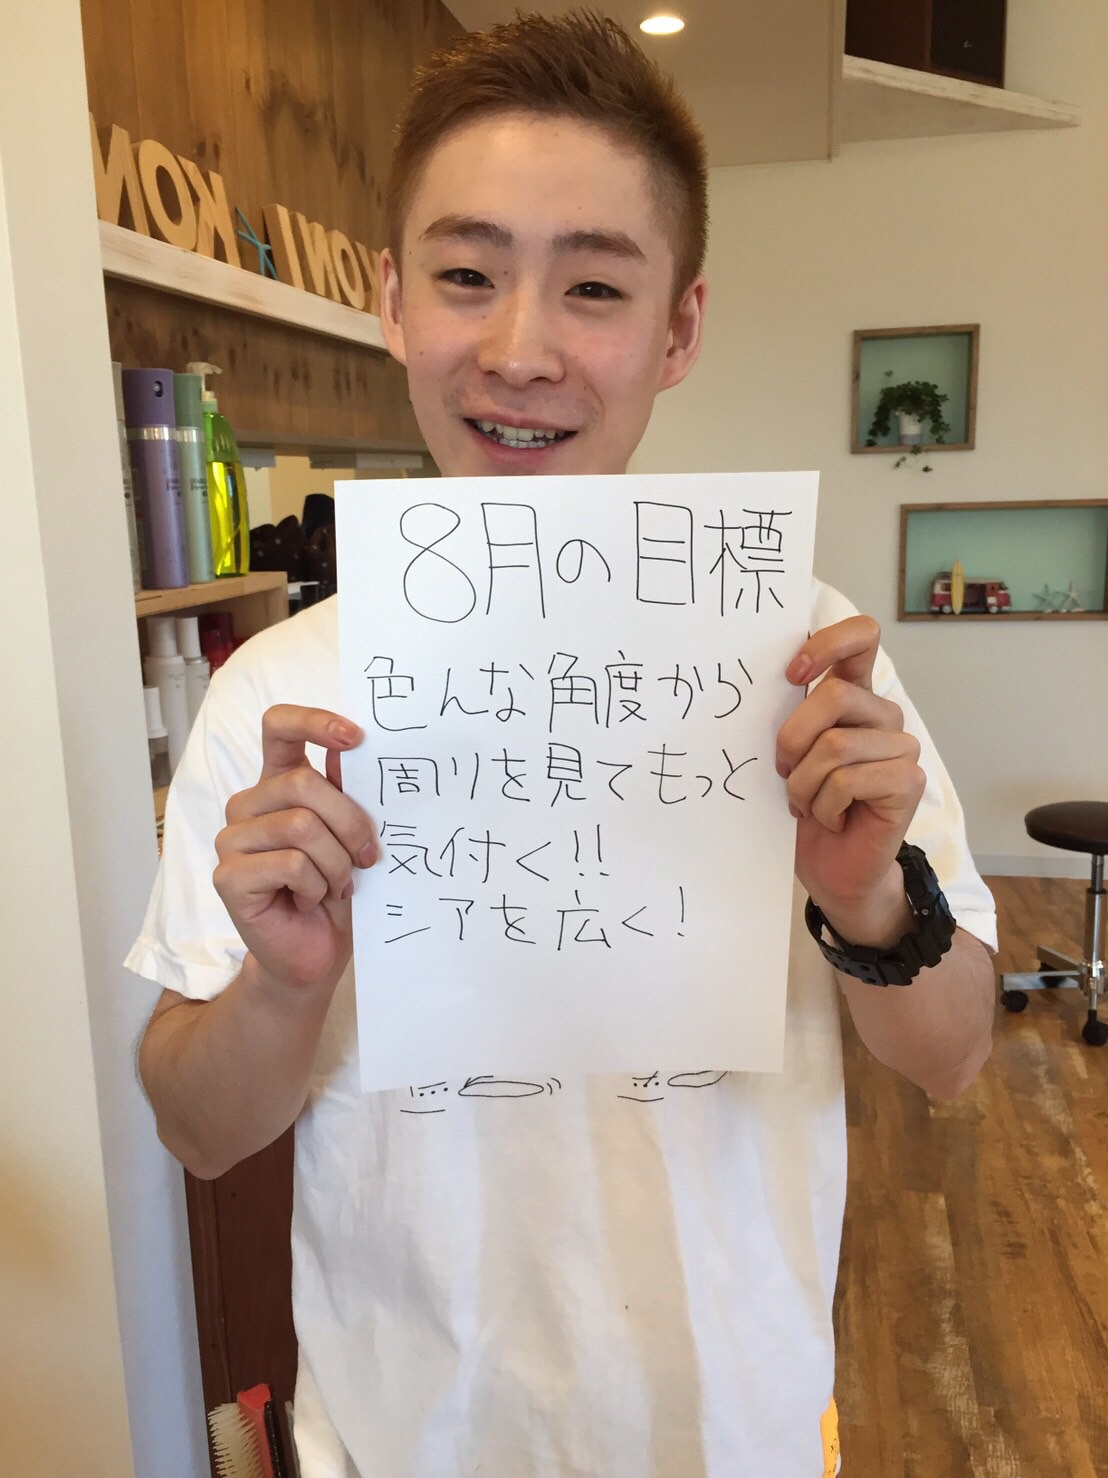 KONI KON
8月の目標
色んな角度から
周りを見てもっと
気付く!!
シアを広く!